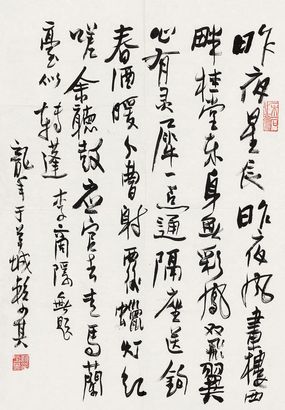 昨夜星辰昨夜風畫樓西
畔桂堂東身無彩鳳双飛翼
心有灵犀一点通隔座送鈎
春酒暖分曹射覆蠟灯紅
嗟余聽鼓應官去走馬蘭
臺似轉蓬 李商隱無題
龍年于羊城